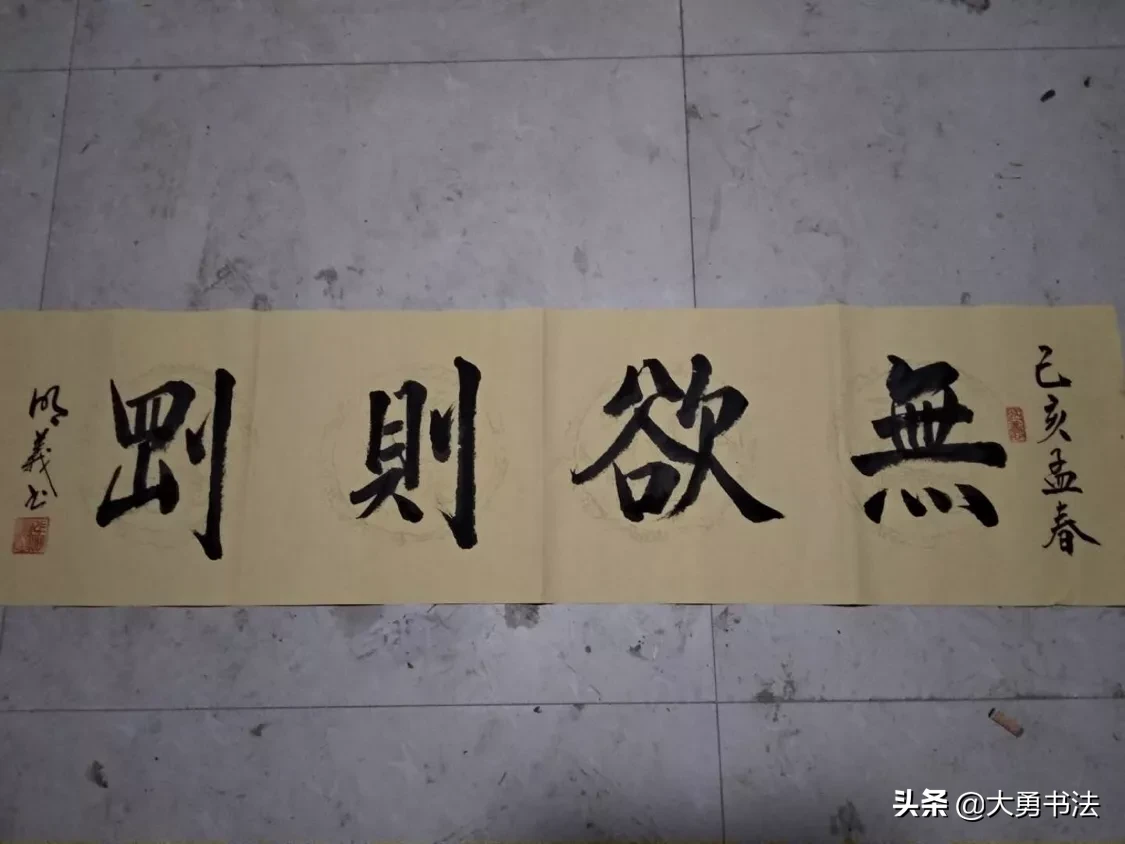 己亥孟春
無欲則剛
明義书
头条 @大勇书法